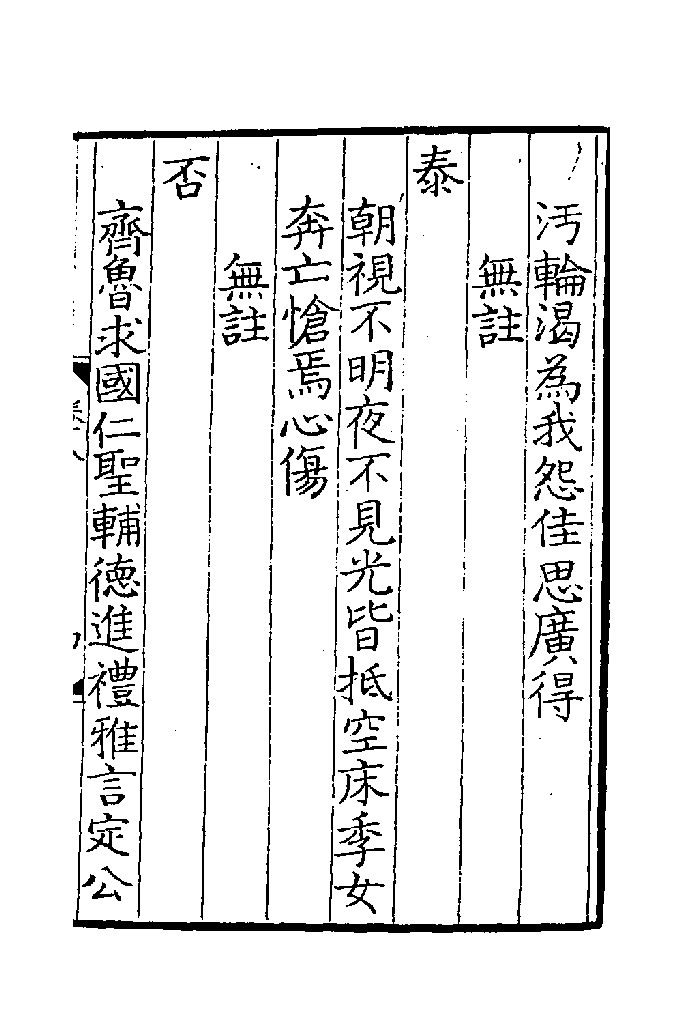 汚輪渴為我怨佳思廣得
無註
泰
朝視不明夜不見光皆抵空床季女
奔亡愴焉心傷
無註
否
齊魯求國仁聖輔德進禮雅言定公